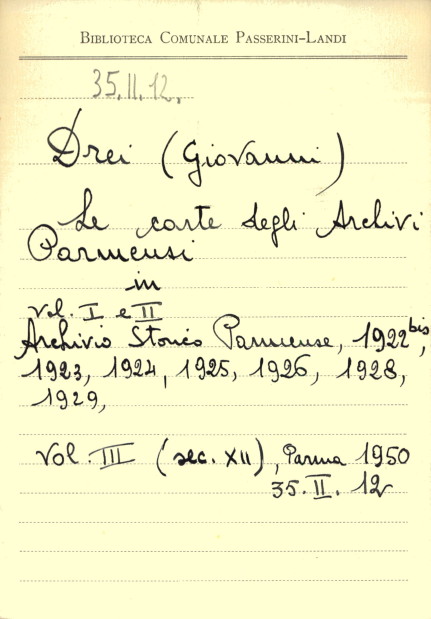 BIBLIOTECA COMUNALE PASSERINI-LANDI
35.II.12.
Drei (Giovanni)
Le carte degli Archivi
Parmensi
in
Vol. I e II
Archivio Storico Parmense, 1922 bis,
1923, 1924, 1925, 1926, 1928,
1929,
Vol. III (sec. XII), Parma 1950
35.II.12